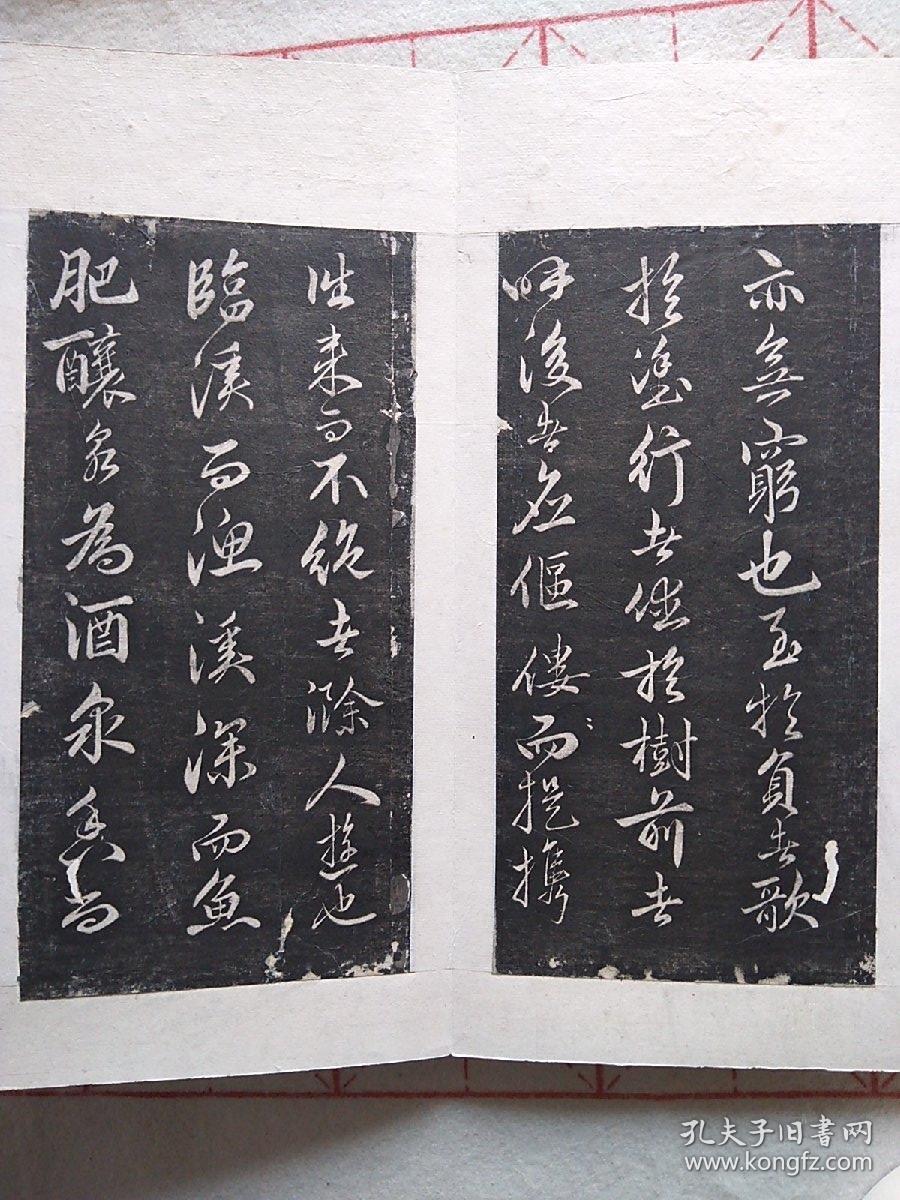 亦無窮也至於負者歌
於塗行者休於樹前者
呼後者應傴僂而提攜
往來而不絶者滁人遊也
臨溪而漁溪深而魚
肥釀泉為酒泉香而
孔夫子旧书网
www.kongfz.com